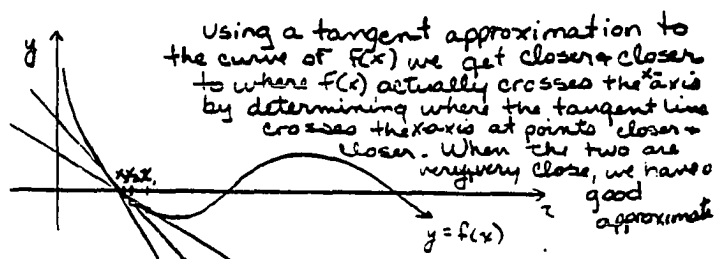 y
using a tangent approximation to
the curve of f(x) we get closer & closer
to where f(x) actually crosses the x-axis
by determining where the tangent line
crosses the x axis at points closer &
closer. When the two are
very, very close, we have a
good
approximate
y = f(x)